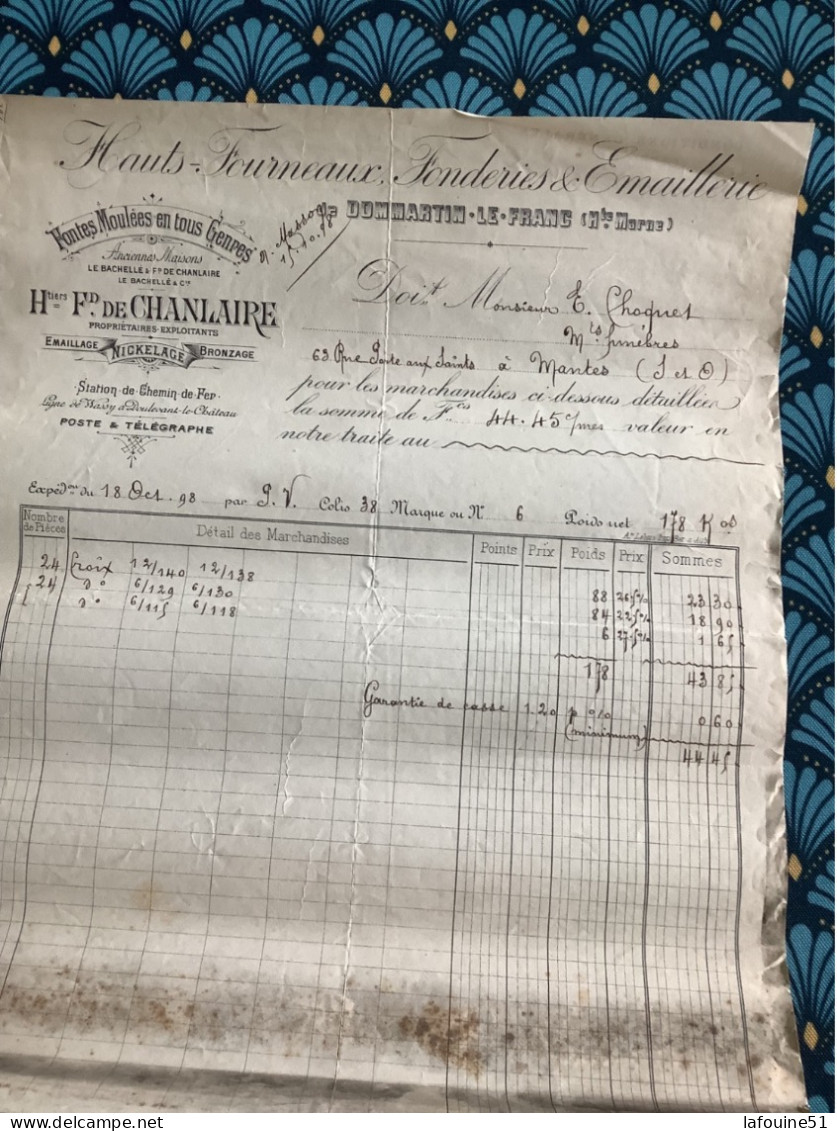 Hauts-Fourneaux, Fonderies & Emaillerie
de DOMMARTIN-LE-FRANC (Hte Marne)
Fontes Moulées en tous Genres
Anciennes Maisons
LE BACHELLÉ & FD. DE CHANLAIRE
LE BACHELLÉ & Cie
Htiers FD. DE CHANLAIRE
PROPRIÉTAIRES-EXPLOITANTS
EMAILLAGE NICKELAGE BRONZAGE
Station de Chemin de Fer
Ligne de Wassy à Doulevant-le-Château
POSTE & TÉLÉGRAPHE
15.10.98
Doit Monsieur E. Choquet
Mts funèbres
63 Rue Porte aux Saints à Mantes (S et O)
pour les marchandises ci-dessous détaillées
la somme de Fcs 44.45 c/mes valeur en
notre traite au
Expédon du 18 Oct. 98 par P.V. Colis 38 Marque ou No 6 Poids net 178 Kos
Nombre de Pièces Détail des Marchandises Points Prix Poids Prix Sommes
24 Croix 12/140 12/138 88 26.5% 23 30
24 do 6/129 6/130 84 22.5% 18 90
do 6/115 6/118 6 27.5% 1 65
178 43 85
Garantie de casse 1.20 p % 0 60
(minimum)
44 45
delcampe.net
lafouine51